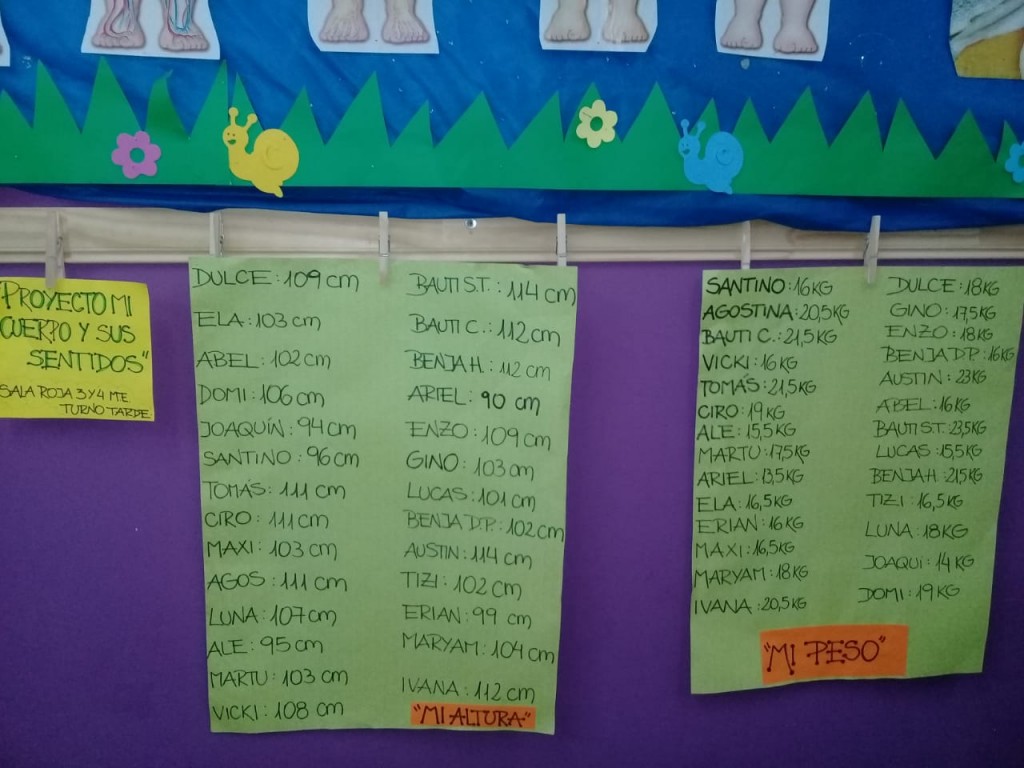 "PROYECTO MI
CUERPO Y SUS
SENTIDOS"
SALA ROJA 3 Y 4 ME
TURNO TARDE
DULCE: 109 cm
ELA: 103 cm
ABEL: 102 cm
DOMI: 106 cm
JOAQUÍN: 94 cm
SANTINO: 96 cm
TOMÁS: 111 cm
CIRO: 111 cm
MAXI: 103 cm
AGOS: 111 cm
LUNA: 107 cm
ALE: 95 cm
MARTU: 103 cm
VICKI: 108 cm
BAUTI ST.: 114 cm
BAUTI C.: 112 cm
BENJA H.: 112 cm
ARIEL: 90 cm
ENZO: 109 cm
GINO: 103 cm
LUCAS: 101 cm
BENJA D.P.: 102 cm
AUSTIN: 114 cm
TIZI: 102 cm
ERIAN: 99 cm
MARYAM: 104 cm
IVANA: 112 cm
"MI ALTURA"
SANTINO: 16 KG
AGOSTINA: 20,5 KG
BAUTI C.: 21,5 KG
VICKI: 16 KG
TOMÁS: 21,5 KG
CIRO: 19 KG
ALE: 15,5 KG
MARTU: 17,5 KG
ARIEL: 13,5 KG
ELA: 16,5 KG
ERIAN: 16 KG
MAXI: 16,5 KG
MARYAM: 18 KG
IVANA: 20,5 KG
DULCE: 18 KG
GINO: 17,5 KG
ENZO: 18 KG
BENJA D.P: 16 KG
AUSTIN: 23 KG
ABEL: 16 KG
BAUTI ST: 23,5 KG
LUCAS: 15,5 KG
BENJA H: 21,5 KG
TIZI: 16,5 KG
LUNA: 18 KG
JOAQUI: 14 KG
DOMI: 19 KG
"MI PESO"